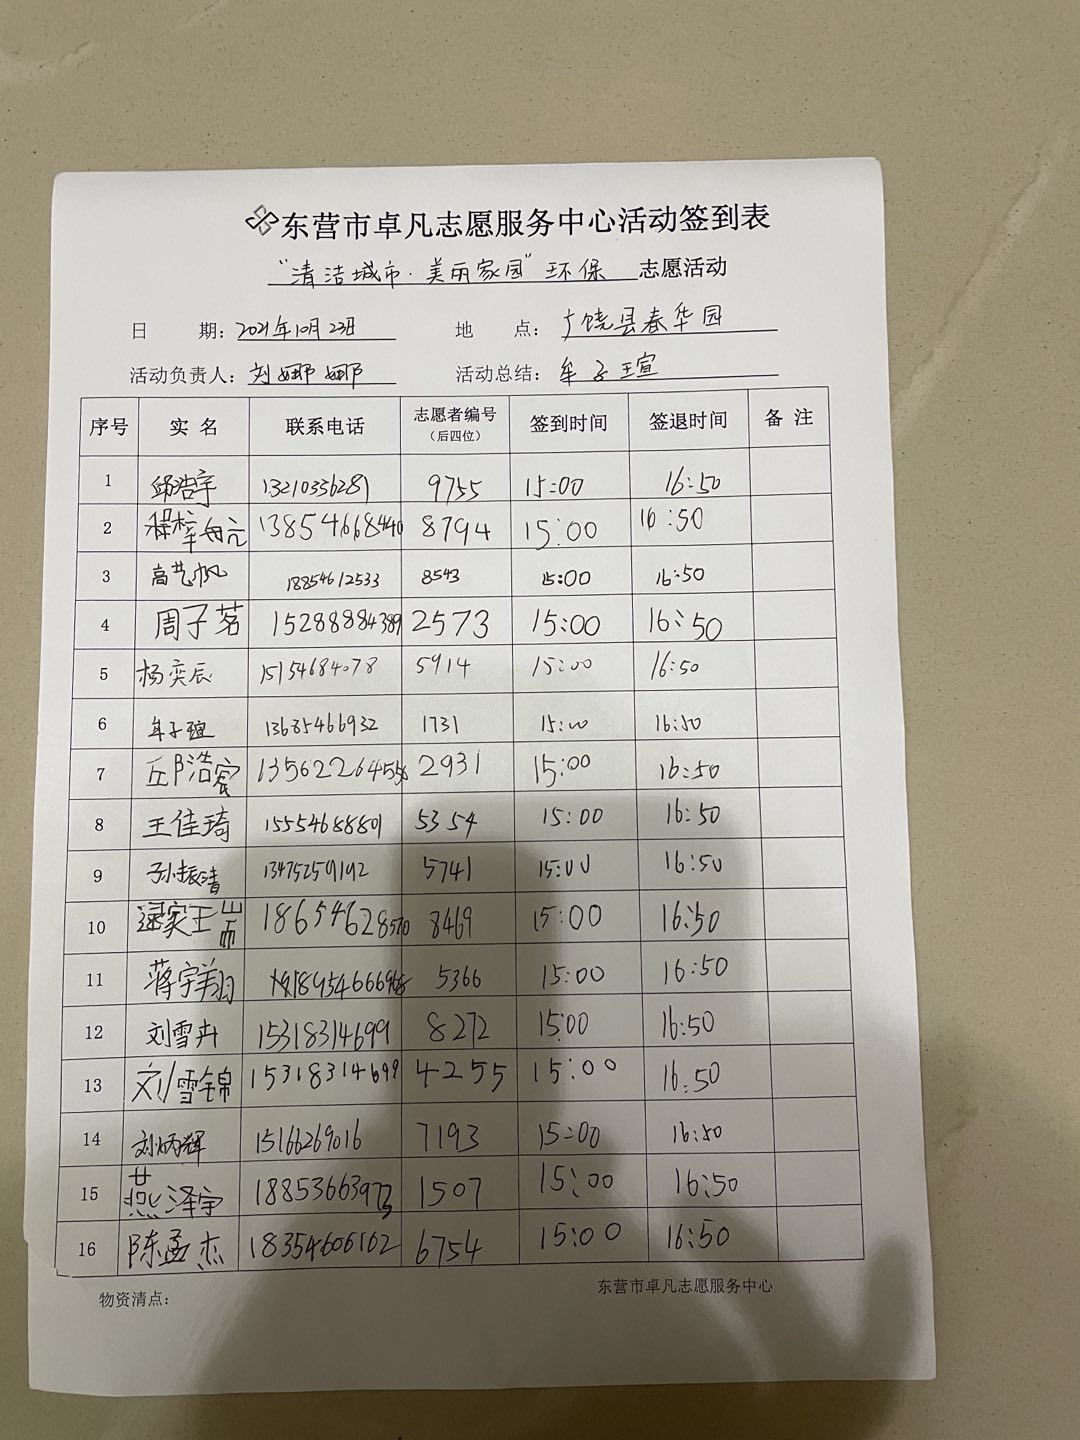 东营市卓凡志愿服务中心活动签到表
“清洁城市·美丽家园”环保 志愿活动
日 期：2021年10月23日 地 点：广饶县春华园
活动负责人：刘娜娜 活动总结：牟子瑄
序号 实名 联系电话 志愿者编号（后四位） 签到时间 签退时间 备注
1 邱浩宇 13210336281 9755 15:00 16:50
2 程梓毓 13854668440 8794 15:00 16:50
3 高艺帆 18854612533 8543 15:00 16:50
4 周子茗 15288884389 2573 15:00 16:50
5 杨奕辰 15154684078 5914 15:00 16:50
6 牟子瑄 13685466932 1731 15:00 16:50
7 邱浩宸 13562264556 2931 15:00 16:50
8 王佳琦 15554688801 5354 15:00 16:50
9 孙振清 13475259192 5741 15:00 16:50
10 逯家瑞 18654628570 8469 15:00 16:50
11 蒋宇翔 18954666968 5366 15:00 16:50
12 刘雪卉 15318314699 8272 15:00 16:50
13 刘雪锦 15318314699 4255 15:00 16:50
14 刘炳辉 15166269016 7193 15:00 16:50
15 燕泽宇 18853663973 1507 15:00 16:50
16 陈孟杰 18354606162 6754 15:00 16:50
物资清点： 东营市卓凡志愿服务中心